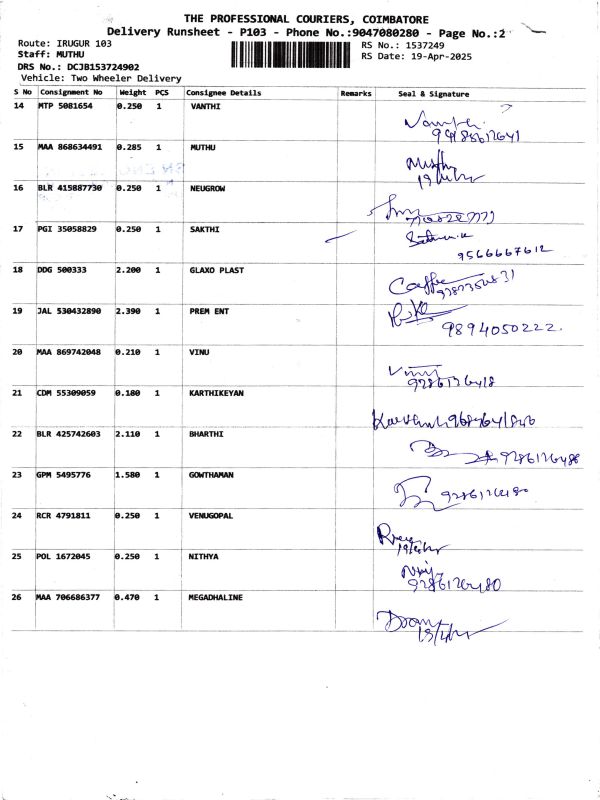 THE PROFESSIONAL COURIERS, COIMBATORE
Delivery Runsheet - P103 - Phone No.:9047080280 - Page No.:2
Route: IRUGUR 103
RS No.: 1537249
Staff: MUTHU
RS Date: 19-Apr-2025
DRS No.: DCJB153724902
Vehicle: Two Wheeler Delivery
S No Consignment No Weight PCS Consignee Details Remarks Seal & Signature
14 MTP 5081654 0.250 1 VANTHI
15 MAA 868634491 0.285 1 MUTHU
16 BLR 415887730 0.250 1 NEUGROW
17 PGI 35058829 0.250 1 SAKTHI
9566667612
18 DDG 500333 2.200 1 GLAXO PLAST
19 JAL 530432890 2.390 1 PREM ENT
9894050222.
20 MAA 869742048 0.210 1 VINU
21 CDM 55309059 0.180 1 KARTHIKEYAN
22 BLR 425742603 2.110 1 BHARTHI
23 GPM 5495776 1.580 1 GOWTHAMAN
24 RCR 4791811 0.250 1 VENUGOPAL
25 POL 1672045 0.250 1 NITHYA
26 MAA 706686377 0.470 1 MEGADHALINE